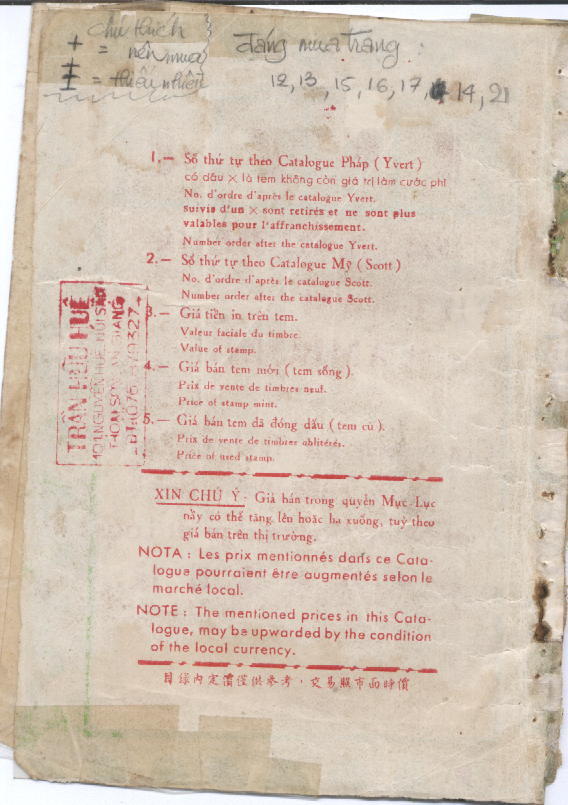 chú thích
+ = nên mua
‡ = thiếu nhiều
đáng mua trang :
12, 13, 15, 16, 17, 14, 21
1.— Số thứ tự theo Catalogue Pháp ( Yvert )
có dấu × là tem không còn giá trị làm cước phí
No. d'ordre d'après le catalogue Yvert.
suivis d'un × sont retirés et ne sont plus
valables pour l'affranchissement.
Number order after the catalogue Yvert.
2.— Số thứ tự theo Catalogue Mỹ ( Scott )
No. d'ordre d'après le catalogue Scott.
Number order after the catalogue Scott.
3.— Giá tiền in trên tem.
Valeur faciale du timbre.
Value of stamp.
4.— Giá bán tem mới ( tem sống ).
Prix de vente de timbres neuf.
Price of stamp mint.
5.— Giá bán tem đã đóng dấu ( tem cũ ).
Prix de vente de timbres oblitérés.
Price of used stamp.
TRẦN HỮU HUÊ
NGUYỄN HUỆ, NÚI SẬP
THOẠI SƠN, AN GIANG
XIN CHÚ Ý - Giá bán trong quyển Mục-Lục
nầy có thể tăng lên hoặc hạ xuống, tuỳ theo
giá bán trên thị trường.
NOTA : Les prix mentionnés dans ce Cata-
logue pourraient être augmentés selon le
marché local.
NOTE : The mentioned prices in this Cata-
logue, may be upwarded by the condition
of the local currency.
目錄內定價僅供參考，交易照市面時價